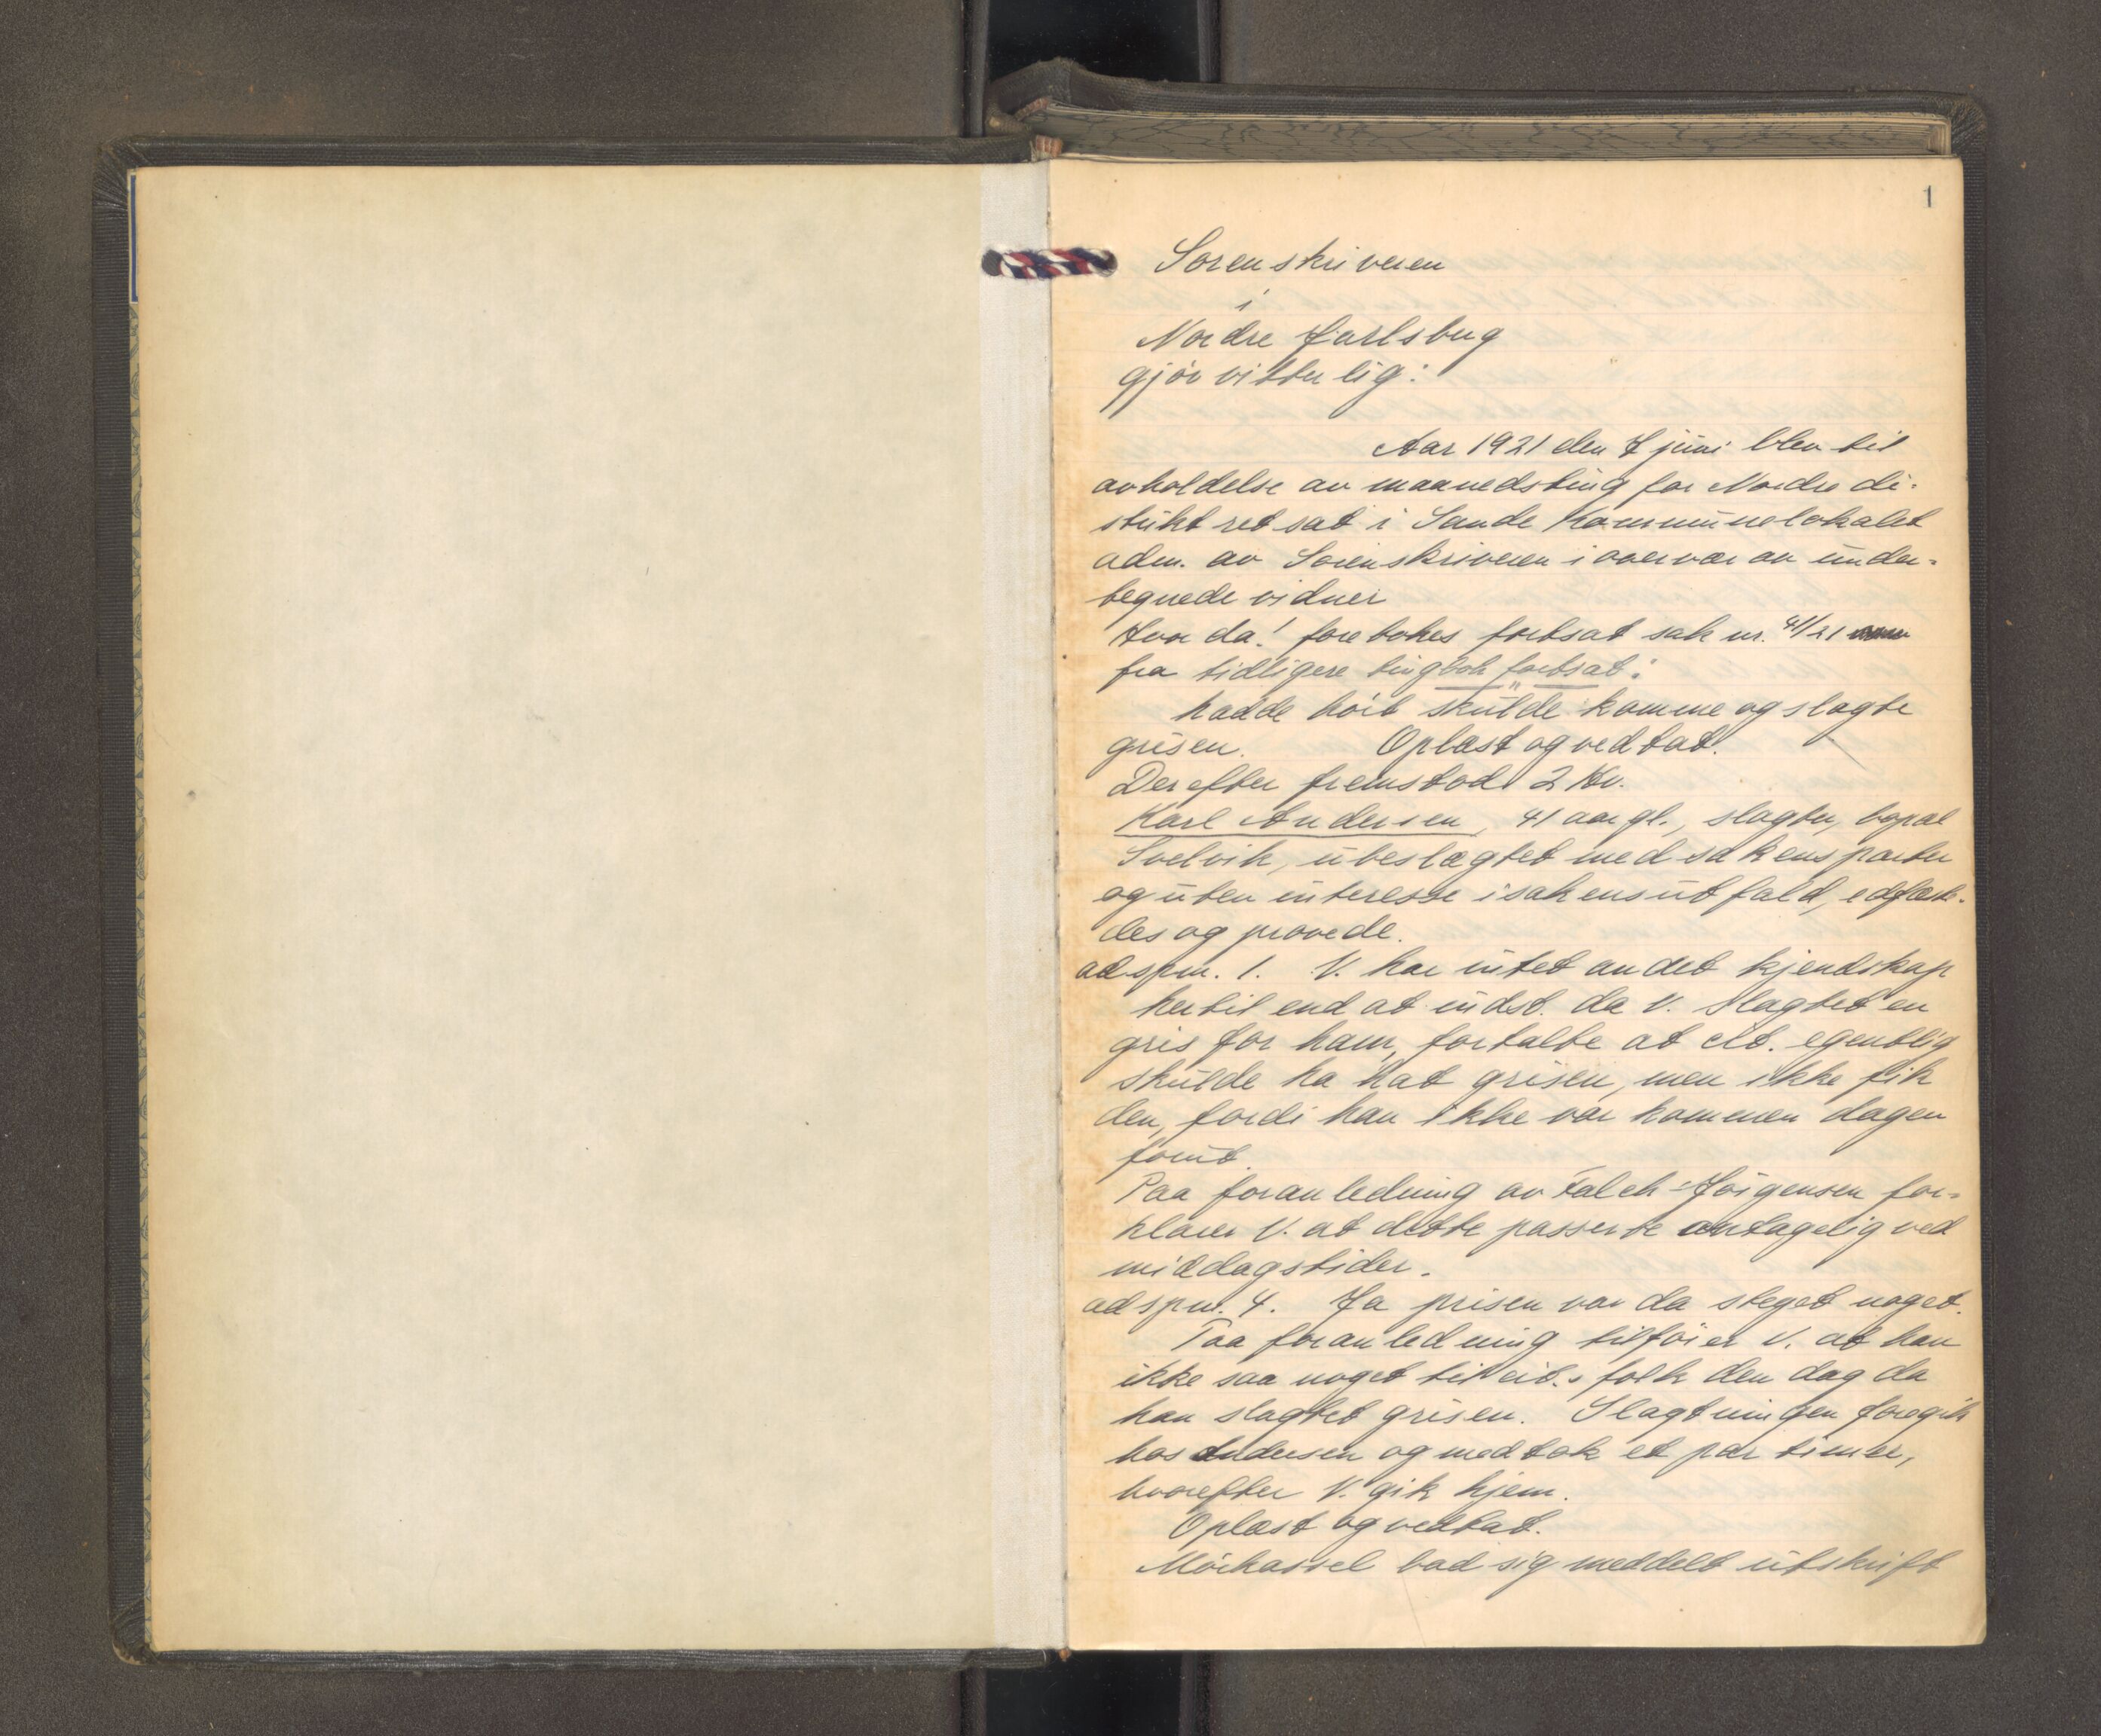 1
Sorenskriveren
i
Nordre Jarlsberg
gjör vitterlig:
Aar 1921 den 7 juni blev til
avholdelse av maanedsting for Nordre di-
strikt ret sat i Sande Kommunelokalet
adm. av Sorenskriveren i overvær av under-
tegnede vidner
Hvor da! foretokes fortsat sak nr. 41/21
fra tidligere tingbok fortsat:
hadde hört skulde komme og slagte
grisen. Oplæst og vedtat.
Derefter fremstod 2 Kv.
Karl Andersen, 41 aar gl., slagter, bopæl
Svelvik, ubeslægtet med sakens parter
og uten interesse i sakens utfald, edfæste-
des og provede.
ad spm. 1. V. har intet andet kjendskap
hertil end at indst. da V. slagtet en
gris for ham, fortalte at cit. egentlig
skulde ha hat grisen, men ikke fik
den, fordi han ikke var kommen dagen
forut.
Paa foranledning av Falch-Jörgensen for-
klarer V. at dette passerte antagelig ved
middagstider.
ad spm. 4. Ja prisen var da steget noget.
Paa foranledning tilföier V. at han
ikke saa noget til cit.s folk den dag da
han slagtet grisen. Slagtningen foregik
hos Andersen og medtok et par timer,
hvorefter V. gik hjem.
Oplæst og vedtat.
Mörkassel bad sig meddelt utskrift